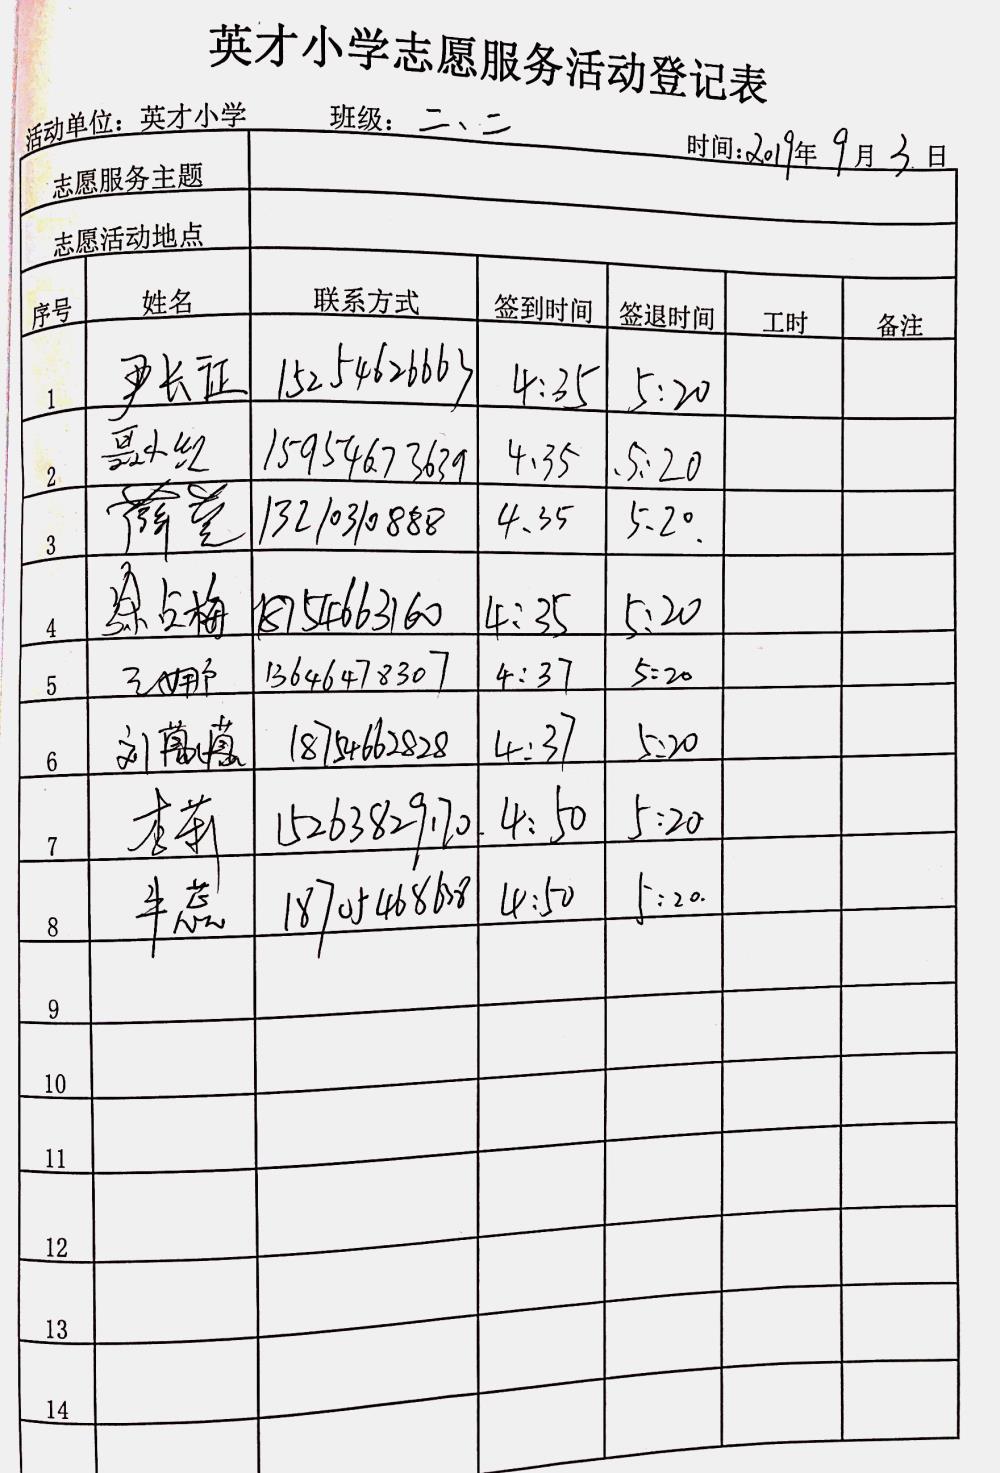 英才小学志愿服务活动登记表
活动单位：英才小学 班级：二、二 时间：2019年9月3日
志愿服务主题
志愿活动地点
序号 姓名 联系方式 签到时间 签退时间 工时 备注
1 尹长征 15254626663 4:35 5:20
2 15954673639 4:35 5:20
3 薛莹 13210310888 4:35 5:20
4 徐占梅 18754663160 4:35 5:20
5 王娜 13646478307 4:37 5:20
6 刘蒿蒿 18754662828 4:37 5:20
7 李莉 15263829170 4:50 5:20
8 牛蕊 18705468638 4:50 5:20
9
10
11
12
13
14